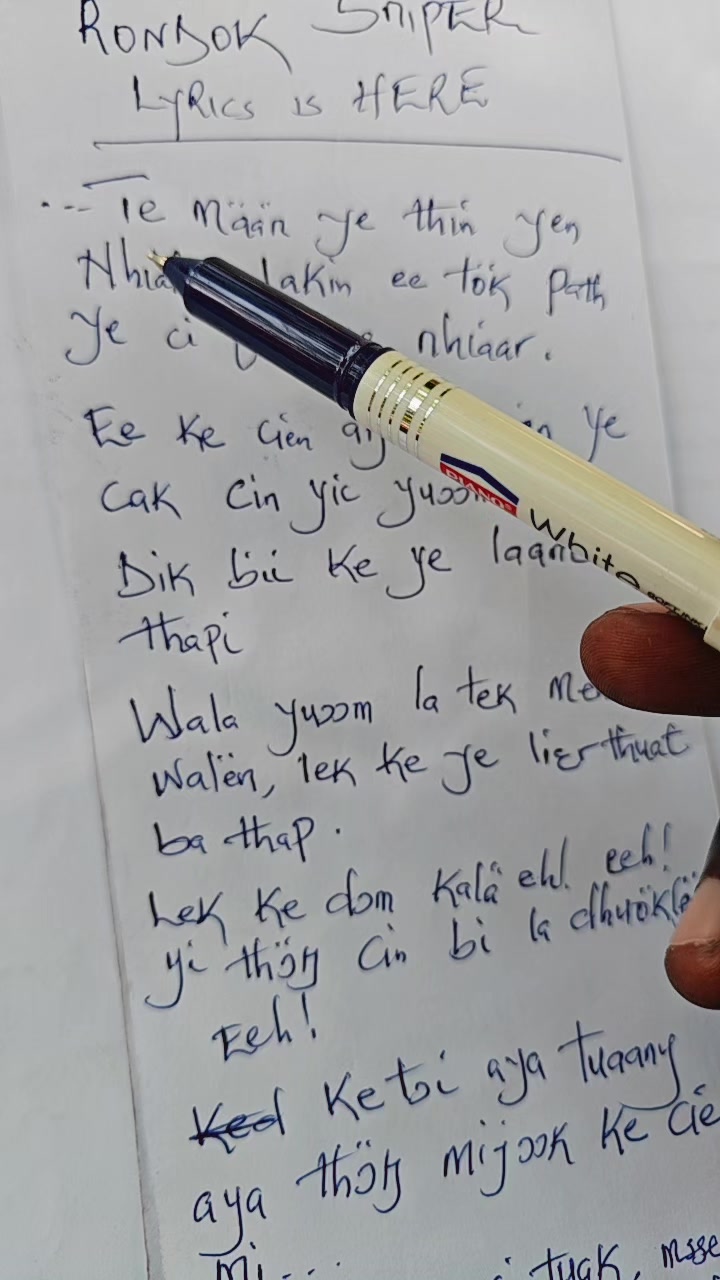 RONDOK SNIPER
LYRICS is HERE
--- Te Mään ye thin yen
lakin ee tök path
Ye ci nhiaar.
Ee ke cien ye
Cak cin yic
Dik bii ke ye
thapi
Wala yuɔɔm la tek
Walën, lek ke ye thuat
ba thap.
Lek ke dɔm Kalä eh! eeh!
yi thɔ̈ŋ Cin bi la
Eeh!
Ketɔi aya tuaany
aya thɔ̈ŋ mijɔɔk ke cie
Mi... tuak,
DIANOS
White